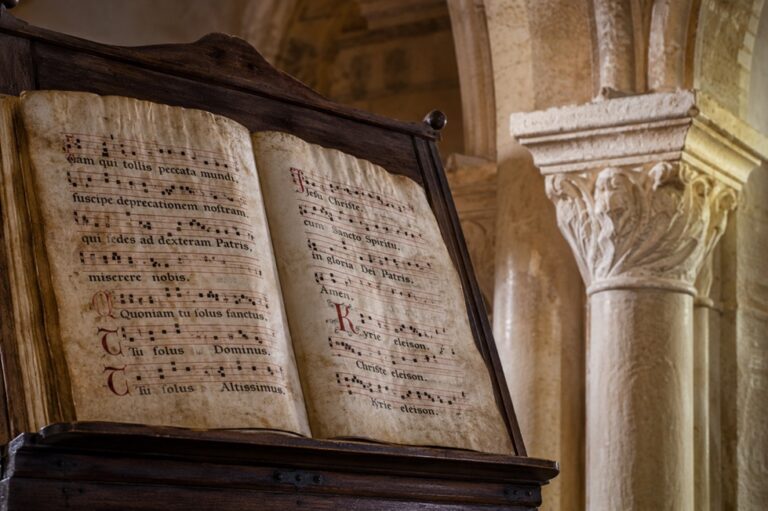 Qam qui tollis peccata mundi,
ſuſcipe deprecationem noſtram.
qui ſedes ad dexteram Patris,
miserere nobis.
Quoniam tu ſolus ſanctus.
Tu ſolus Dominus.
Tu ſolus Altissimus.
Jeſu Chriſte
cum Sancto Spiritu.
in gloria Dei Patris.
Amen.
Kyrie eleison.
Chriſte eleison.
Kyrie eleison.